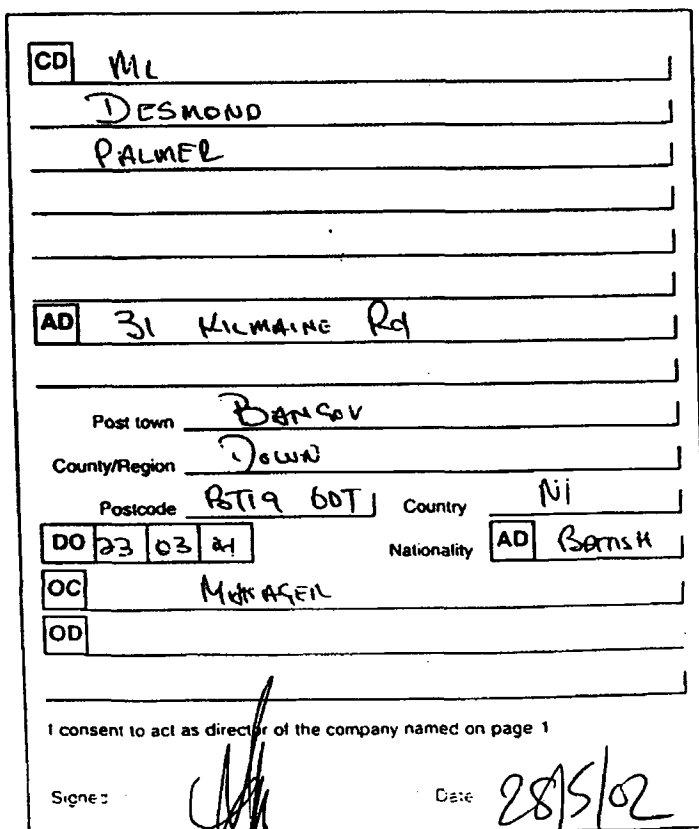 CD Mr
DESMOND
PALMER
AD 31 KILMAINE Rd
Post town BANGOR
County/Region DOWN
Postcode BT19 6DT Country NI
DO 23 03 Nationality AD BRITISH
OC MANAGER
OD
I consent to act as director of the company named on page 1
Signed Date 28/5/02